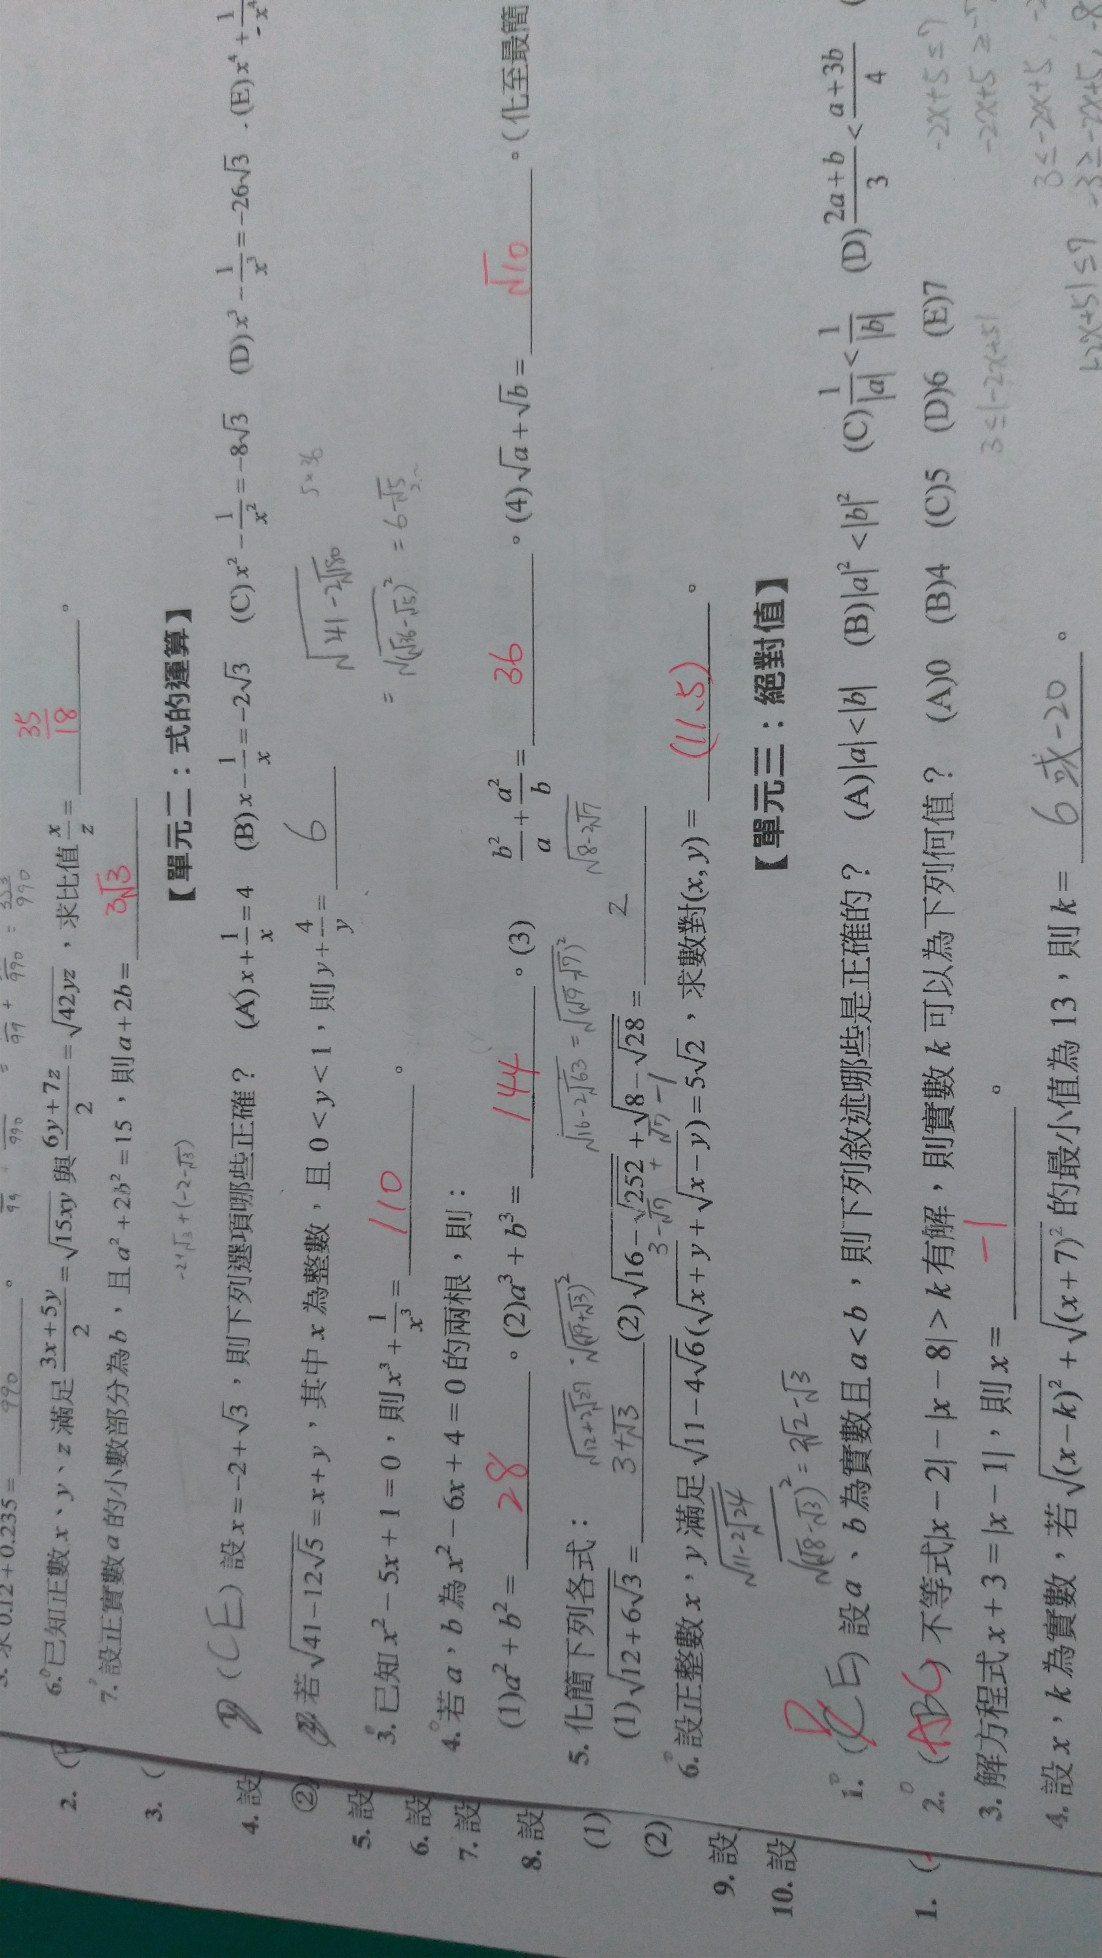 求 0.12 + 0.235 = 990 。
6. 已知正數 x、y、z 滿足 (3x+5y)/2 = √(15xy) 與 (6y+7z)/2 = √(42yz)，求比值 x/z = 35/18 。
7. 設正實數 a 的小數部分為 b，且 a² + 2b² = 15，則 a + 2b = 3√3
【單元二：式的運算】
(CE) 設 x = -2 + √3，則下列選項哪些正確？ (A) x + 1/x = 4 (B) x - 1/x = -2√3 (C) x² - 1/x² = -8√3 (D) x³ - 1/x³ = -26√3 (E) x⁴ + 1/x⁴
若 √(41-12√5) = x + y，其中 x 為整數，且 0 < y < 1，則 y + 4/y = 6
√(41-2√180) 5×36
= √((√36-√5)²) = 6-√5
3. 已知 x² - 5x + 1 = 0，則 x³ + 1/x³ = 110 。
4. 若 a，b 為 x² - 6x + 4 = 0 的兩根，則：
(1) a² + b² = 28 。(2) a³ + b³ = 144 。(3) b²/a + a²/b = 36 。(4) √a + √b = √10 。(化至最簡
5. 化簡下列各式：
√(12+2√27) = √((√9+√3)²) √(16-2√63) = √((√9-√7)²) √(8-2√7)
(1) √(12+6√3) = 3+√3 (2) √(16-√252) + √(8-√28) = 2
3-√7 + √7-1
6. 設正整數 x，y 滿足 √(11-4√6)(√(x+y) + √(x-y)) = 5√2，求數對 (x, y) = (11.5) 。
√(11-2√24)
√((√8-√3)²) = 2√2-√3
【單元三：絕對值】
1. (E) 設 a、b 為實數且 a < b，則下列敘述哪些是正確的？ (A) |a| < |b| (B) |a|² < |b|² (C) 1/|a| < 1/|b| (D) (2a+b)/3 < (a+3b)/4
2. (ABC) 不等式 |x-2| - |x-8| > k 有解，則實數 k 可以為下列何值？ (A)0 (B)4 (C)5 (D)6 (E)7
3. 解方程式 x + 3 = |x-1|，則 x = -1 。
4. 設 x，k 為實數，若 √((x-k)²) + √((x+7)²) 的最小值為 13，則 k = 6 或 -20 。
-2x+5≤7
3≤|-2x+5|
3≤-2x+5
|-2x+5|≤7
-3≥-2x+5
2. (
3. (
4. 設
②
5. 設
6. 設
7. 設
8. 設
(1)
(2)
9. 設
10. 設
1. (